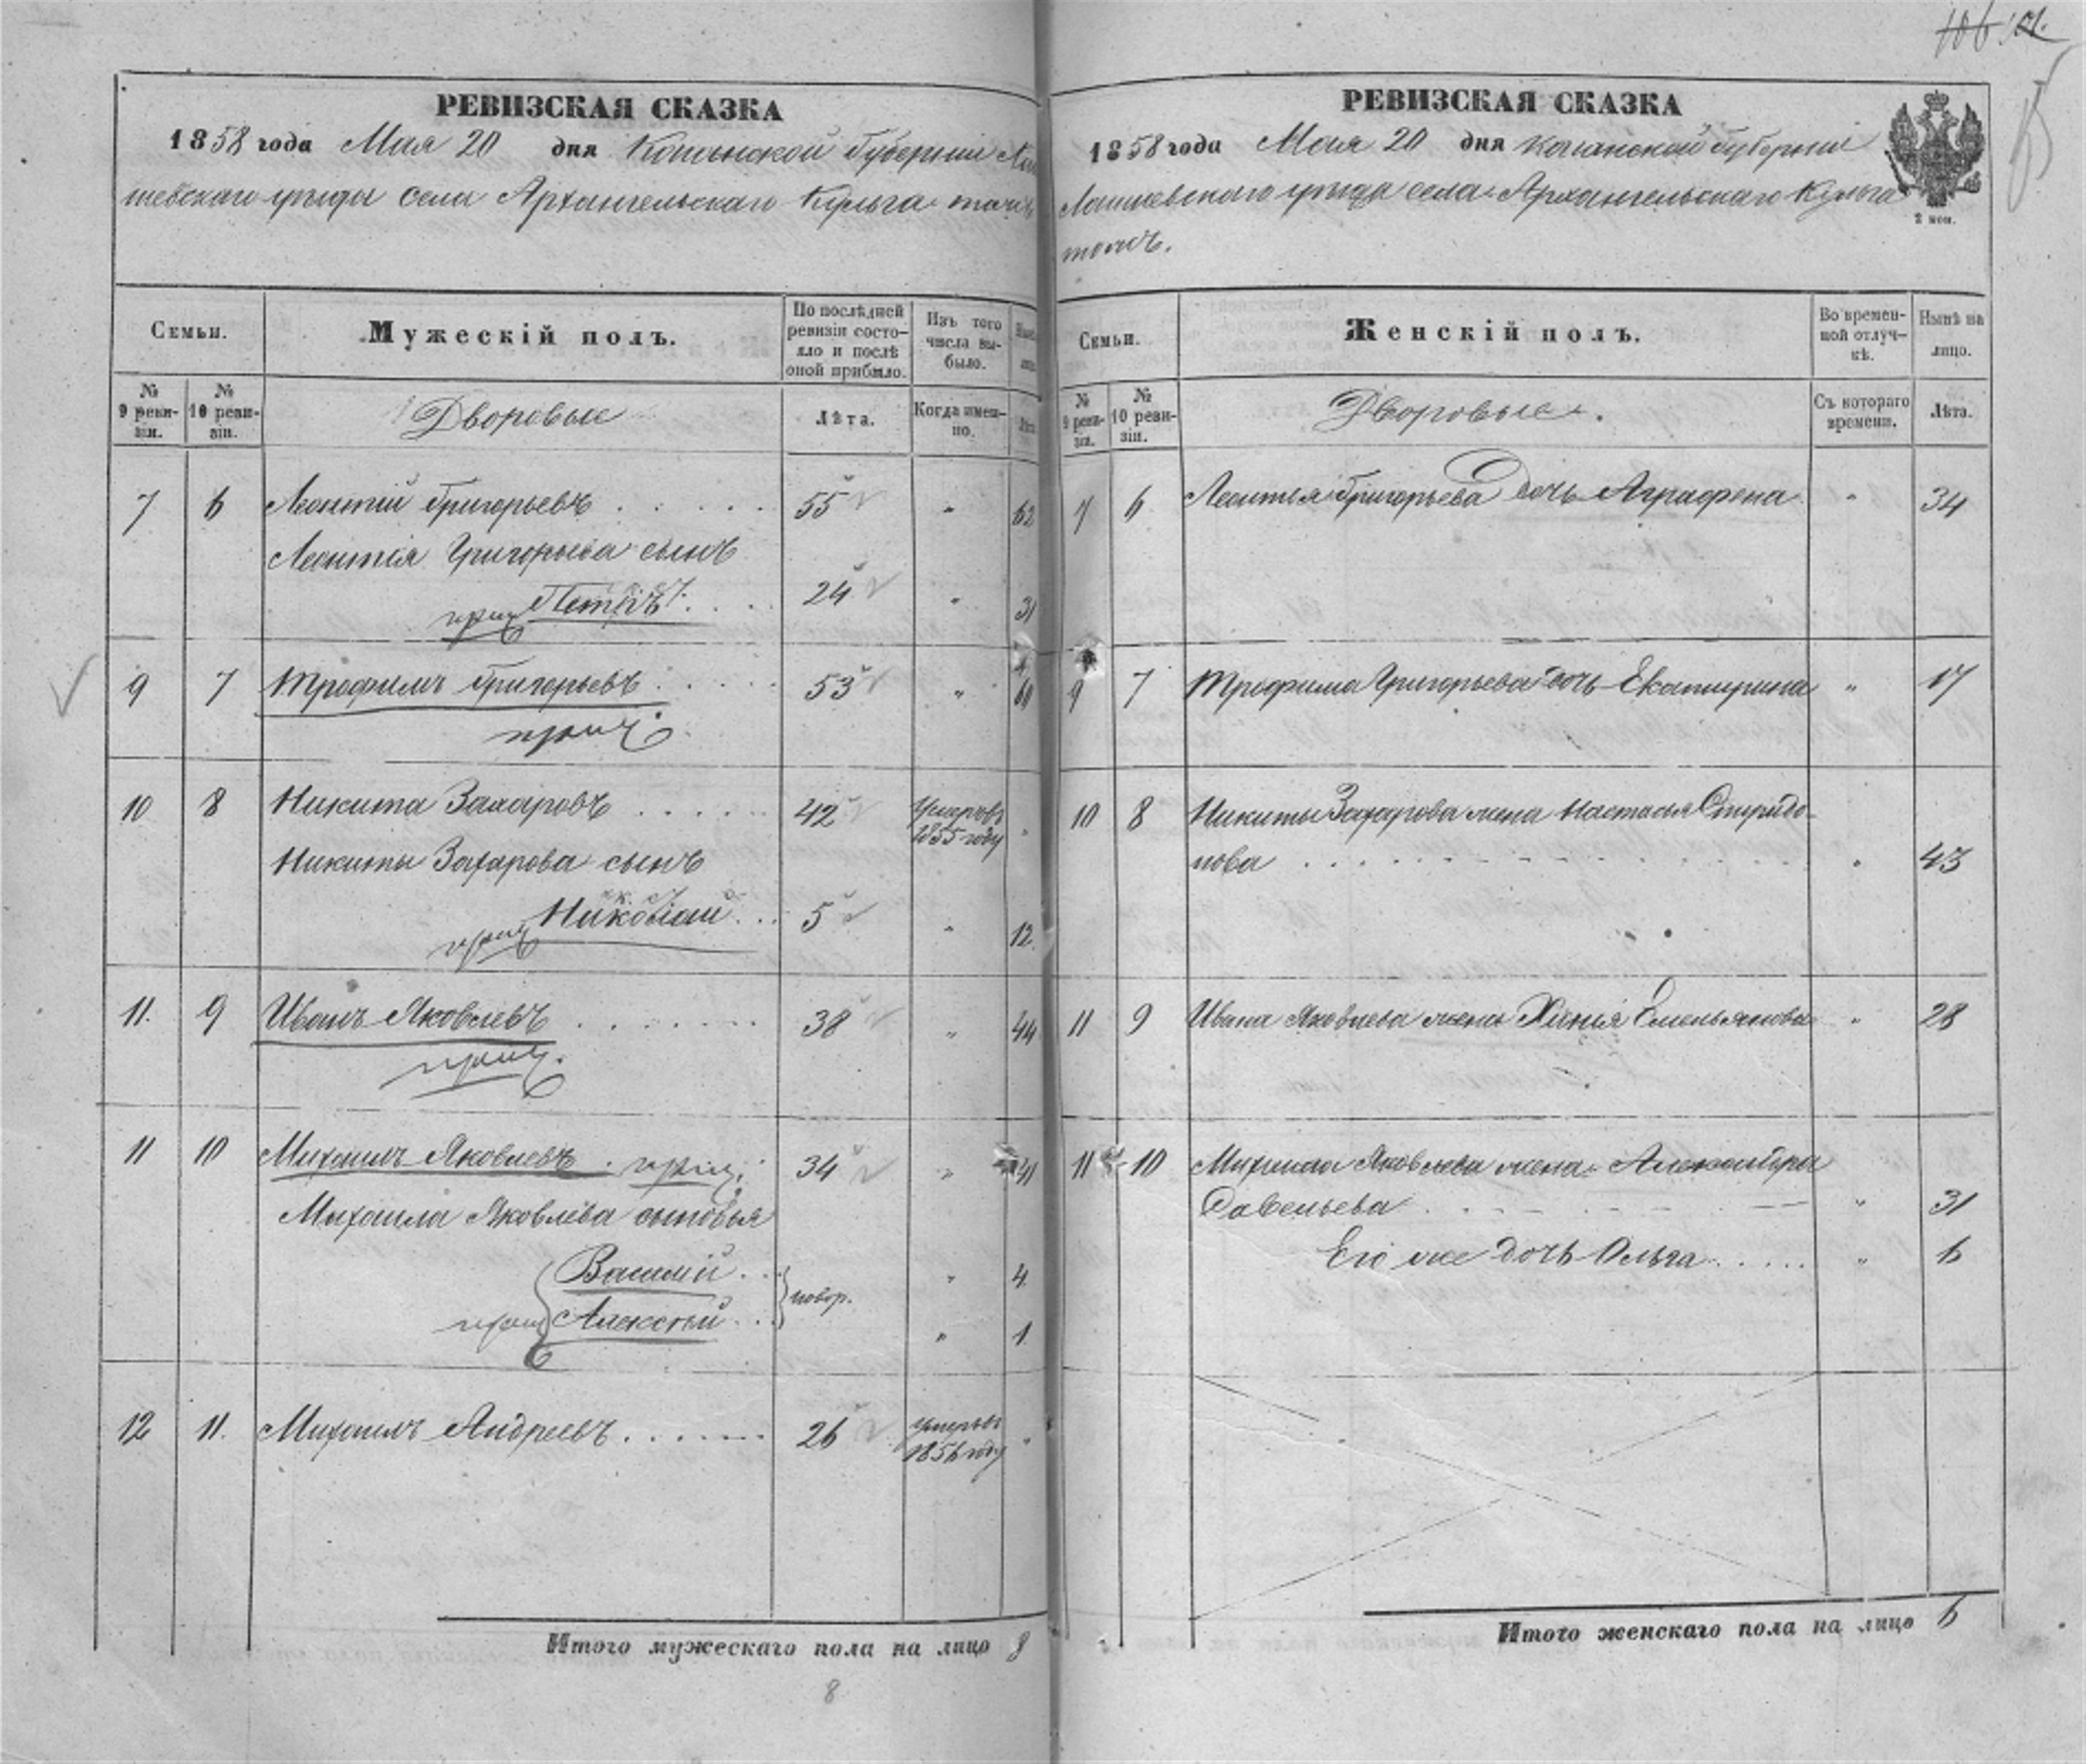 106
РЕВИЗСКАЯ СКАЗКА
1858 года Мая 20 дня Казанской Губернии Лаи
шевскаго уезда села Архангельскаго Кульга тожъ
Семьи.
Мужескій полъ.
По послѣдней ревизіи состо-
яло и послѣ
оной прибыло.
Изъ того
числа вы-
было.
№
9 реви-
зіи.
№
10 реви-
зіи.
Дворовые
Лѣта.
Когда имен-
но.
7 6 Леонтій Григорьевъ 55 " 62
Леонтія Григорьева сынъ
Петръ 24 " 31
9 7 Трофимъ Григорьевъ 53 " 60
10 8 Никита Захаровъ 42 Умеръ въ
1855 году "
Никиты Захарова сынъ
Николай 5 " 12
11. 9 Иванъ Яковлевъ 38 " 44
11 10 Михаилъ Яковлевъ 34 " 41
Михаила Яковлева сыновья
Василій " 4
новор.
Алексѣй " 1
12 11. Михаилъ Андреевъ 26 Умеръ въ
1856 году "
Итого мужескаго пола на лицо 8
8
РЕВИЗСКАЯ СКАЗКА
1858 года Мая 20 дня Казанской Губерніи
Лаишевскаго уезда села Архангельскаго Кульга
тожъ.
2 коп.
Семьи.
Женскій полъ.
Во времен-
ной отлуч-
кѣ.
Нынѣ на
лицо.
№
9 реви-
зіи.
№
10 реви-
зіи.
Дворовые.
Съ котораго
времени.
Лѣта.
7 6 Леонтья Григорьева дочь Аграфена " 34
9 7 Трофима Григорьева дочь Екатерина " 17
10 8 Никиты Захарова жена Настасья Спиридо-
нова " 43
11 9 Ивана Яковлева жена Ксенія Емельянова " 28
11 10 Михаила Яковлева жена Александра
Савельева " 31
Его же дочь Ольга " 6
Итого женскаго пола на лицо 6